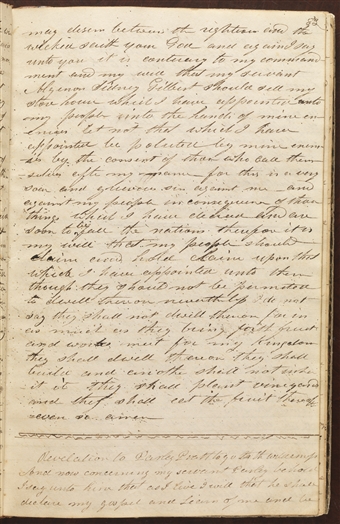 52
may desern between the righteous and the
wicked saith your God and again I say
unto you it is contrary to my command-
ment and my will that my servant
Algernon Sidney Gilbert should sell my
store house which I have appointed unto
my people unto the hands of mine en-
emies let not that which I have
appointed be poluted by mine enem-
ies by the consent of those who call them-
selves after my name for this is a very
soar and grievous sin against me and
against my people in consequence of those
things which I have decreed and are
soon to befall the nations therefore it is
my will that my people should
claim and hold claim upon that
which I have appointed unto them
though they should not be permitted
to dwell thereon nevertheless I do not
say they shall not dwell thereon for in
as much as they bring forth fruit
and works meet for my Kingdom
they shall dwell thereon they shall
build and another shall not inher
it it they shall plant vineyards
and they shall eat the fruit thereof
even so amen
Revelation to
And now concerning my servant
I say unto him that as I live I will that he should
declare my gospel and learn of me and be